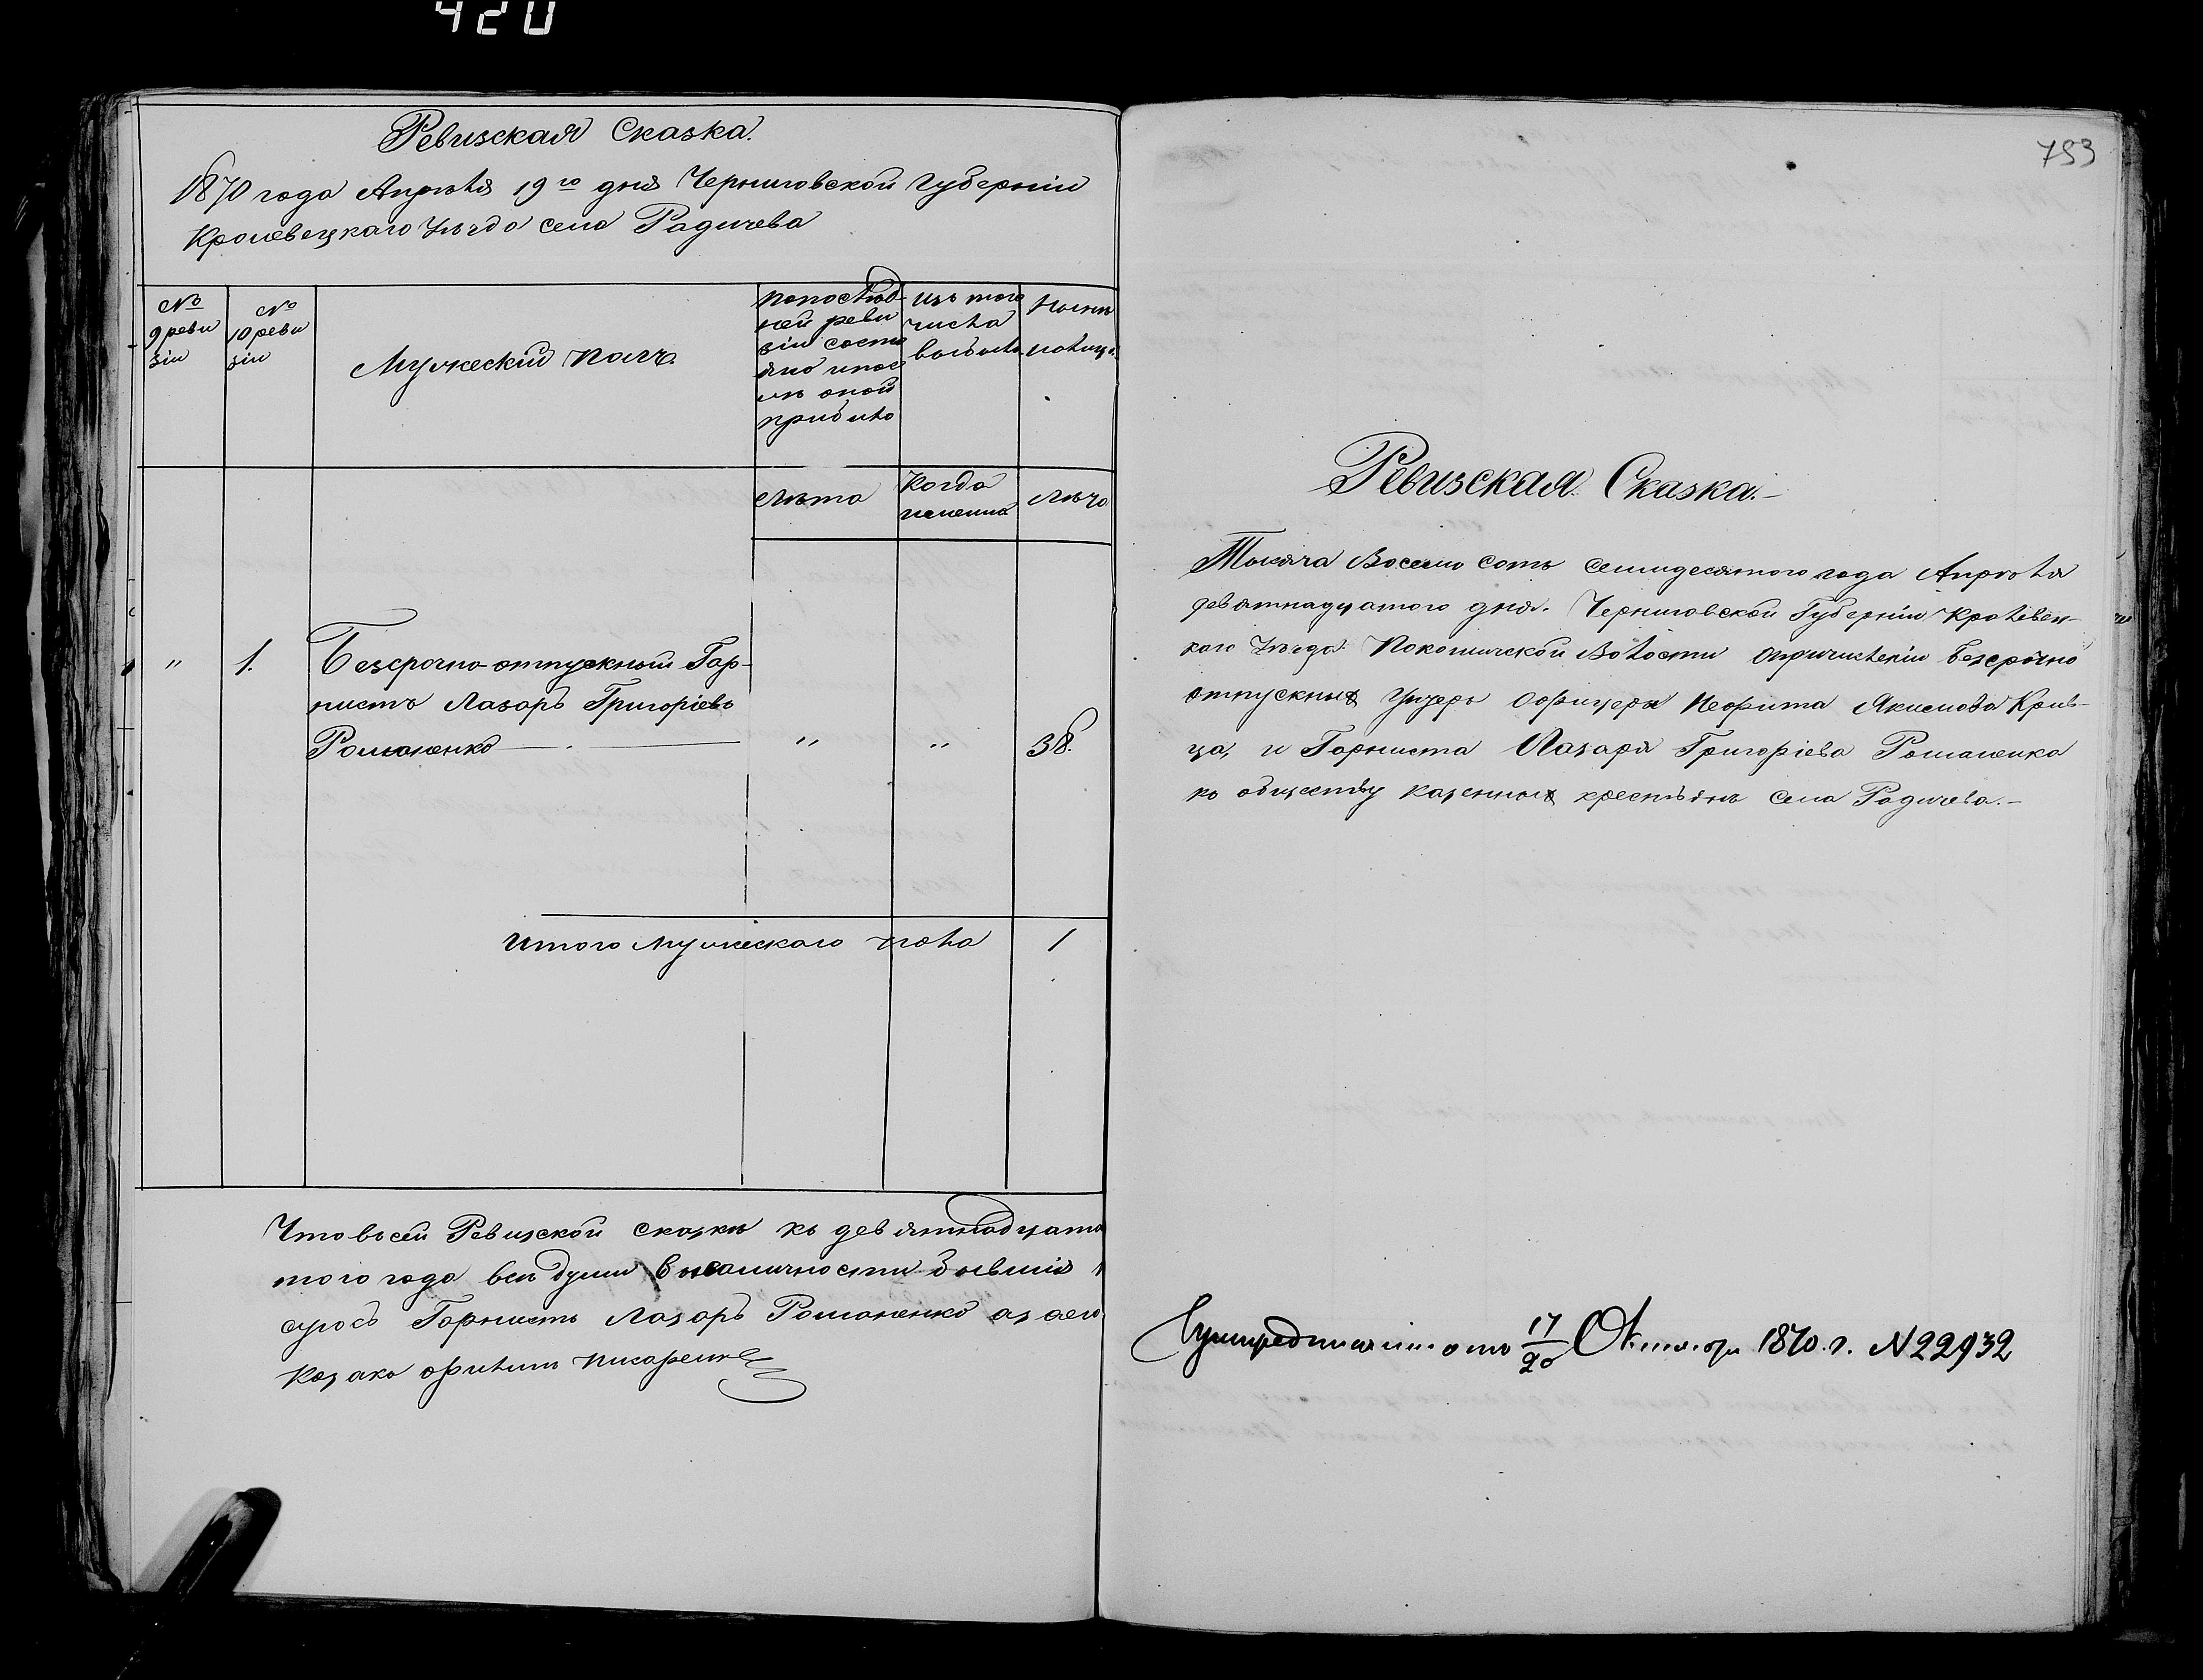 420
Ревизская Сказка.
1870 года Апрѣля 19го дня Черниговской Губерніи
Кролевецкаго Уѣзда села Радичева
№
9 реви
зіи
№
10 реви
зіи
Мужескій полъ.
Попослѣд-
ней реви
зіи состо
яло ипос
лѣ оной
прибыло
Изъ того
числа
выбыло
Нынѣ
налицо.
Лѣта
Когда
именно
Лѣта
" 1. Безсрочно-отпускный Гор-
нистъ Лазарь Григорьевъ
Романенко " " 38.
Итого мужескаго пола 1
Что въсей Ревизской сказкѣ къ девятнадцата
того года всѣ души в наличности бывшія
Горнистъ Лазарь Романенко а за его
Козакъ Филипъ Писаренко
753
Ревизская Сказка.-
Тысяча Восемь сотъ семидесятого года Апрѣля
девятнадцатого дня. Черниговской Губерніи Кролевец-
каго Уѣзда Покошичской Волости Опричисленіи безсрочно
отпускныхъ Унцеръ Офицера Неофита Якимова Крив-
ца, и Горниста Лазаря Григоріева Романенка
къ обществу казенныхъ крестьянъ села Радичева.-
17/20 Октября 1870. г. N 22932